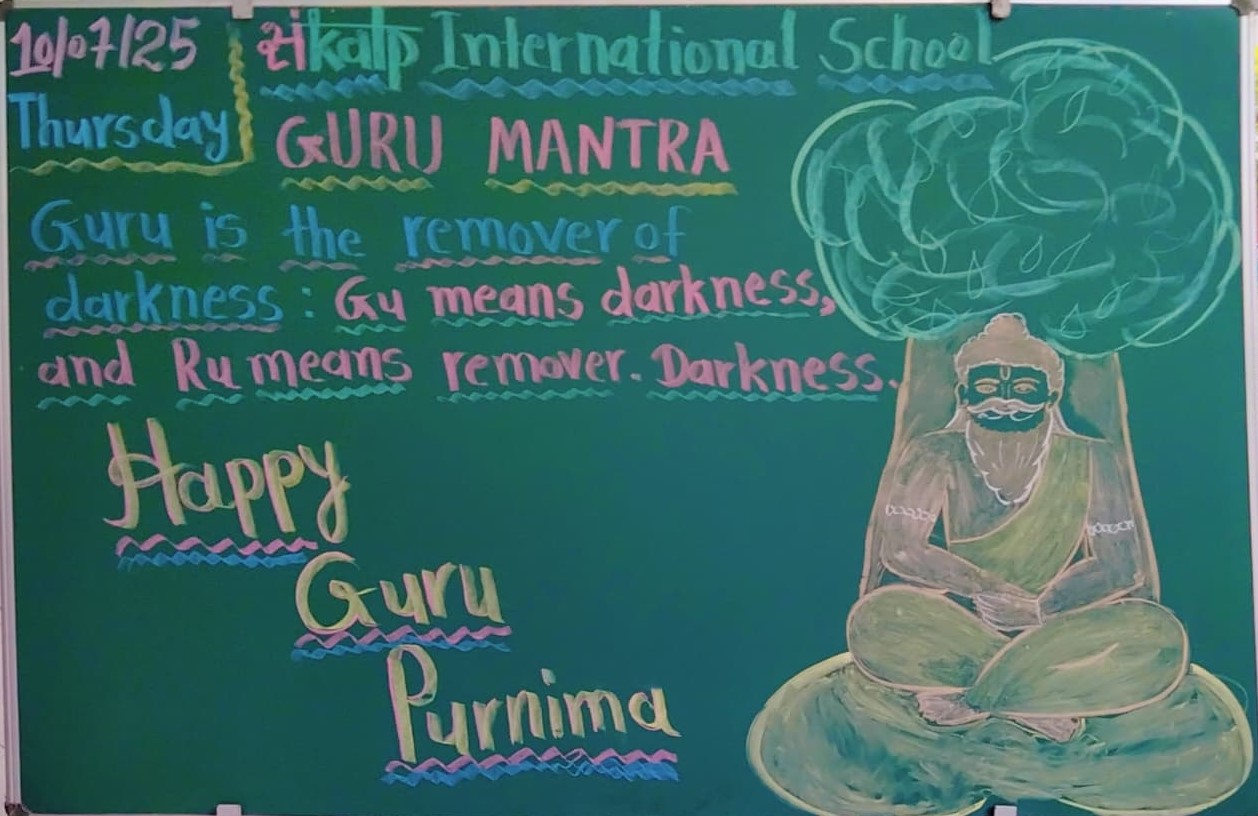 10/07/25
Thursday
संkalp International School
GURU MANTRA
Guru is the remover of
darkness : Gu means darkness,
and Ru means remover. Darkness.
Happy
Guru
Purnima